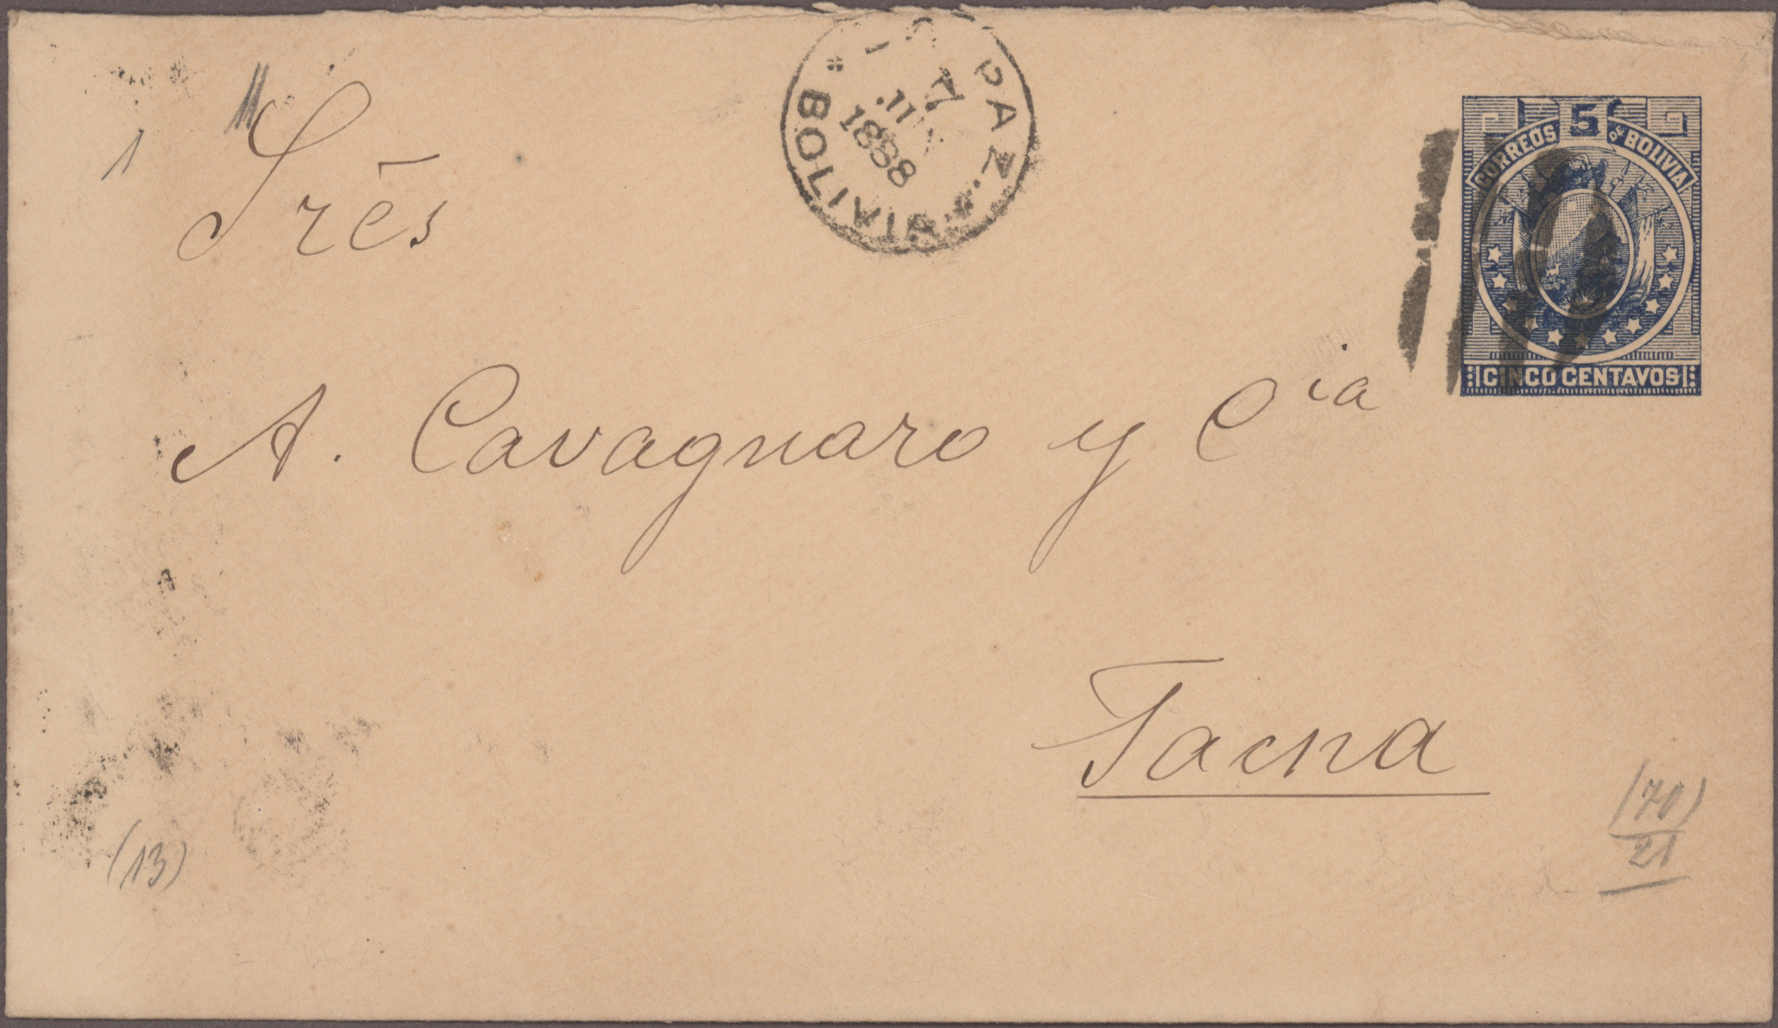 1
PAZ
7
JUN
1888
BOLIVIA
5
CORREOS DE BOLIVIA
CINCO CENTAVOS
Srēs
A. Cavagnaro y Cia
Tacna
(13)
(70)
21